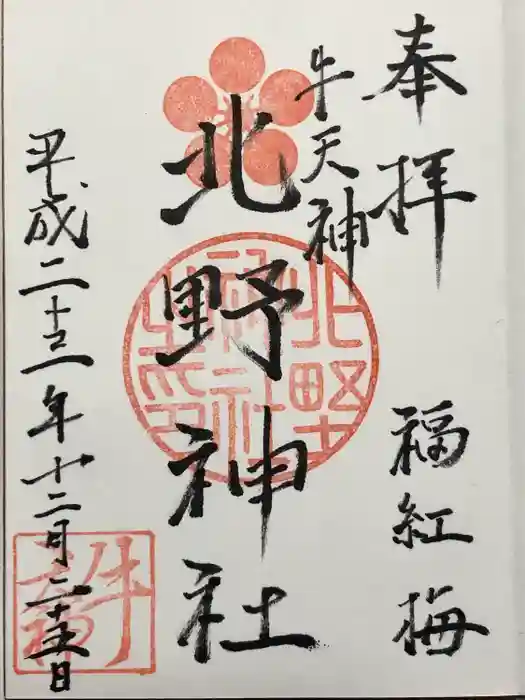 奉拝
福紅梅
牛天神
北野神社
北野神社之印
平成二十三年十二月二十五日
牛天神